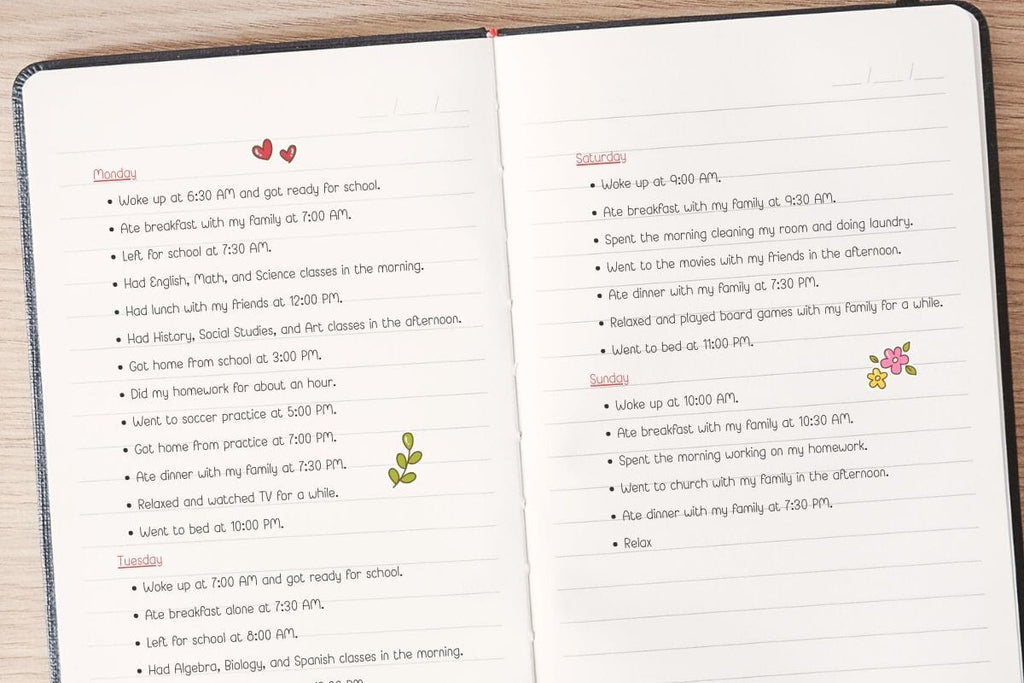 Monday
• Woke up at 6:30 AM and got ready for school.
• Ate breakfast with my family at 7:00 AM.
• Left for school at 7:30 AM.
• Had English, Math, and Science classes in the morning.
• Had lunch with my friends at 12:00 PM.
• Had History, Social Studies, and Art classes in the afternoon.
• Got home from school at 3:00 PM.
• Did my homework for about an hour.
• Went to soccer practice at 5:00 PM.
• Got home from practice at 7:00 PM.
• Ate dinner with my family at 7:30 PM.
• Relaxed and watched TV for a while.
• Went to bed at 10:00 PM.
Tuesday
• Woke up at 7:00 AM and got ready for school.
• Ate breakfast alone at 7:30 AM.
• Left for school at 8:00 AM.
• Had Algebra, Biology, and Spanish classes in the morning.
Saturday
• Woke up at 9:00 AM.
• Ate breakfast with my family at 9:30 AM.
• Spent the morning cleaning my room and doing laundry.
• Went to the movies with my friends in the afternoon.
• Ate dinner with my family at 7:30 PM.
• Relaxed and played board games with my family for a while.
• Went to bed at 11:00 PM.
Sunday
• Woke up at 10:00 AM.
• Ate breakfast with my family at 10:30 AM.
• Spent the morning working on my homework.
• Went to church with my family in the afternoon.
• Ate dinner with my family at 7:30 PM.
• Relax